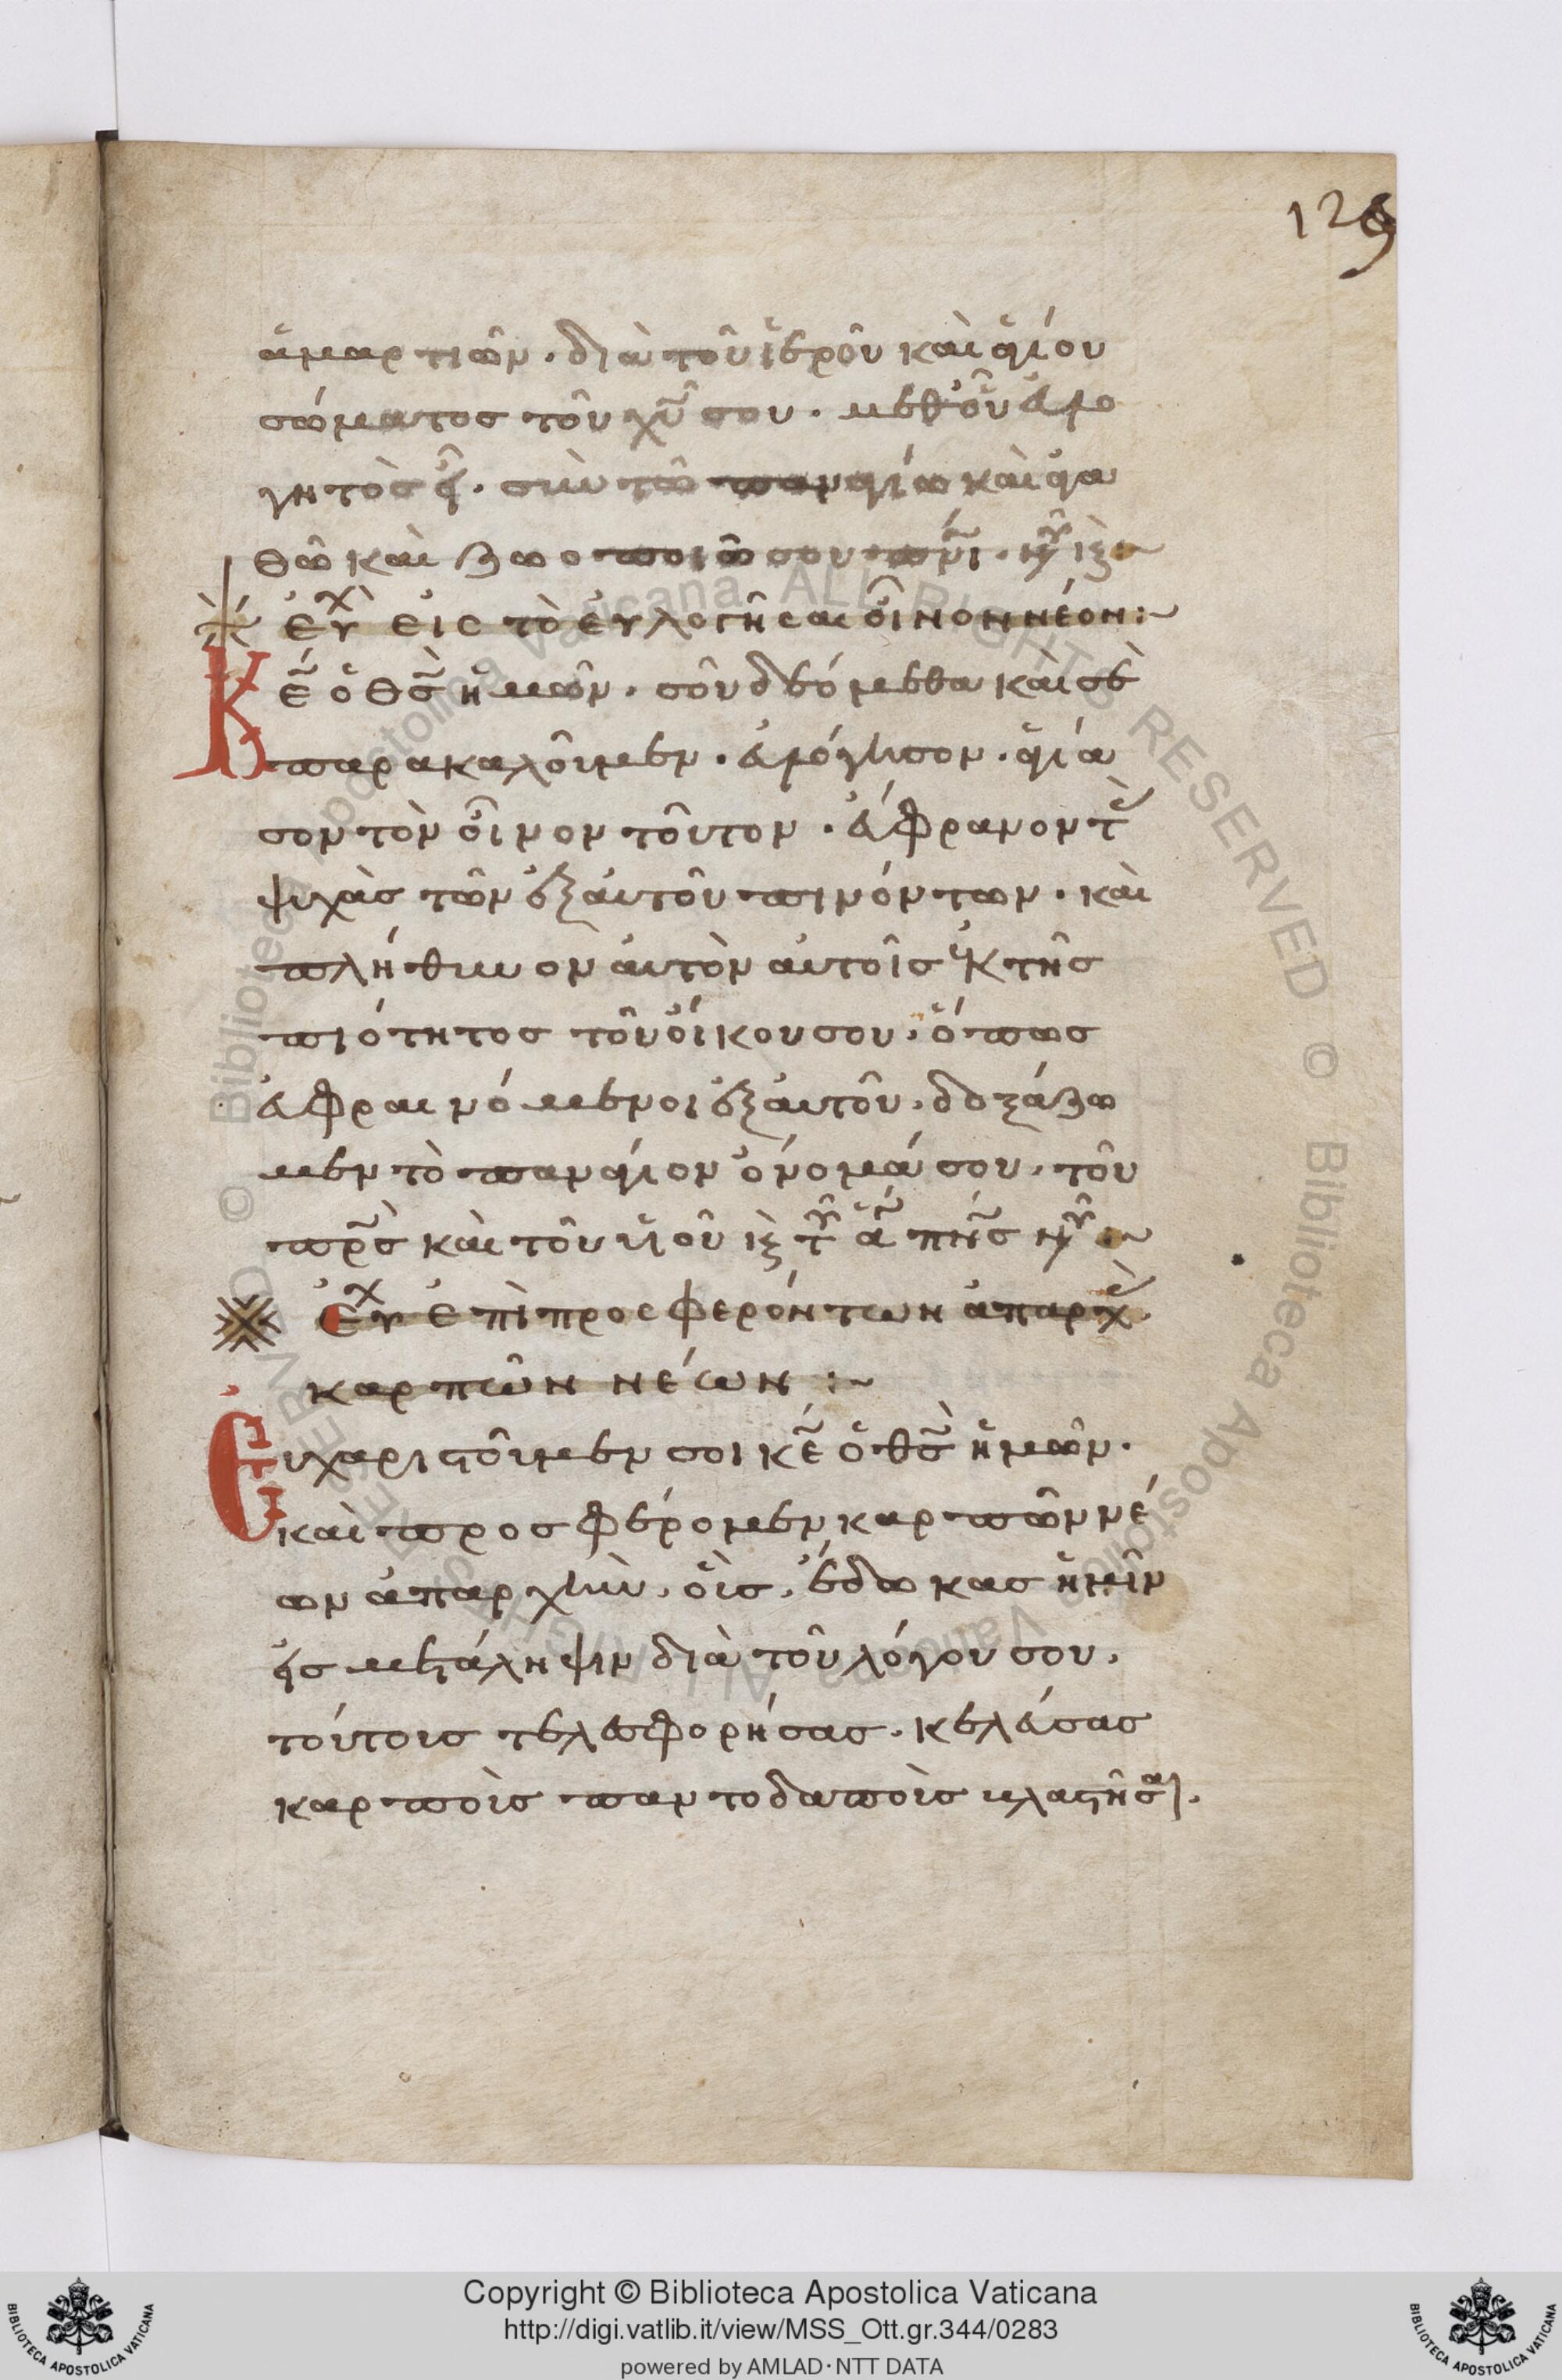 129
ἁμαρτιῶν. διὰ τοῦ ἱεροῦ καὶ ἁγίου
σώματος τοῦ χ̅υ̅ σου. μεθ οὗ εὐλο
γητὸς εἶ. σὺν τῶ παναγίω καὶ ἀγα
θῶ καὶ ζωοποιῶ σου π̅ν̅ι. νῦν κ(αὶ)
εὐχ εἰς τὸ εὐλογῆσαι οἶνον νέον:~
Κ̅ε̅ ὁ θ̅ς̅ ἡμῶν. σοῦ δεόμεθα καὶ σὲ
παρακαλοῦμεν. εὐλόγησον. ἁγία
σον τὸν οἶνον τοῦτον. εὔφρανον τ(ὰς)
ψυχὰς τῶν ἐξ αὐτοῦ πινόντων. καὶ
πλήθυνον αὐτὸν αὐτοῖς ἐκ τῆς
πιότητος τοῦ οἴκου σου. ὅπως
εὐφραινόμενοι ἐξ αὐτοῦ. δοξάζω
μεν τὸ πανάγιον ὄνομά σου. τοῦ
π̅ρ̅ς̅ καὶ τοῦ υἱοῦ κ(αὶ) τ(οῦ) ἁ π̅ν̅ς̅ νῦν :~
εὐχ ἐπὶ προσφερόντων ἀπαρχ(ὰς)
καρπῶν νέων :~
Εὐχαριστοῦμεν σοι κ̅ε̅ ὁ θ̅ς̅ ἡμῶν.
καὶ προσφέρομεν καρπῶν νέ
ων ἀπαρχὴν. οἷς. ἔδωκας ἡμῖν
εἰς μετάληψιν διὰ τοῦ λόγου σου.
τούτοις τελεσφορήσας. κελεύσας
καρποὶς παντοδαποὶς
Copyright © Biblioteca Apostolica Vaticana
http://digi.vatlib.it/view/MSS_Ott.gr.344/0283
powered by AMLAD·NTT DATA
BIBLIOTECA APOSTOLICA VATICANA
BIBLIOTECA APOSTOLICA VATICANA
© Biblioteca Apostolica Vaticana ALL RIGHTS RESERVED
© Biblioteca Apostolica Vaticana ALL RIGHTS RESERVED